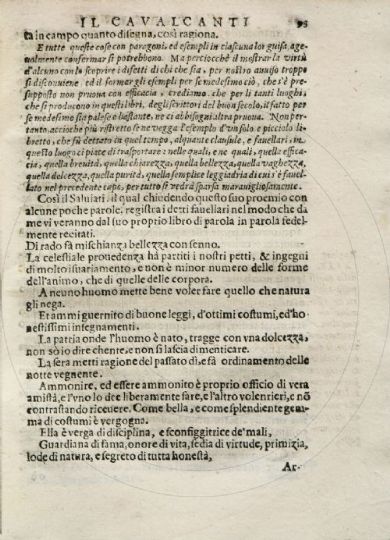 IL CAVALCANTI 95
ta in campo quanto disegna, così ragiona.
E tutte queste cose con paragoni, ed esempli in ciascuna lor guisa age-
uolmente confermar si potrebbono. Ma perciocchè il mostrar la virtù
d'alcuno con lo scoprire i difetti di chi che sia, per nostro auuiso troppo
si disconuiene, ed il fermar gli esempli per se medesimo ciò, che s'è pre-
supposto non pruoua con efficacia, crediamo che per li tanti luoghi,
che si producono in questi libri, degli scrittori del buon secolo, il fatto per
se medesimo sia palese a bastante, ne ci abbisogni altra pruoua. Non per-
tanto, acciocche più ristretto se ne vegga l'esempio d'un solo, e picciolo li-
bretto, che fù dettato in quel tempo, alquante clausule, e fauellari, in
questo luogo ci piace di trasportare, nelle quali, e ne' quali, quella effica-
cia, quella breuità, quella chiarezza, quella bellezza, quella vaghezza,
quella dolcezza, quella purità, quella semplice leggiadria di cui s'è fauel-
lato nel precedente capo, per tutto si vedrà sparsa marauigliosamente.
Così il Saluiati. il qual chiudendo questo suo proemio con
alcune poche parole. registra i detti fauellari nel modo che da
me vi veranno dal suo proprio libro di parola in parola fedel-
mente recitati.
Di rado fà mischianza bellezza con senno.
La celestiale prouedenza hà partiti i nostri petti, & ingegni
di molto suariamento, e non è minor numero delle forme
dell'animo, che di quelle delle corpora.
A neuno huomo mette bene voler fare quello che natura
gli nega.
Etammi guernito di buone leggi, d'ottimi costumi, ed'ho-
nestissimi insegnamenti.
La patria onde l'huomo è nato, tragge con vna dolcezza,
non sò io dire chente, e non si lascia dimenticare.
La sera metti ragione del passato dì, e fà ordinamento delle
notte vegnente.
Ammonire, ed essere ammonito è proprio officio di vera
amistà, e l'vno lo dee liberamente fare, e l'altro volentieri, e nō
contrastando riceuere. Come bella, e come splendiente gem-
ma di costumi è vergogna.
Ella è verga di disciplina, e sconfiggitrice de' mali,
Guardiana di fama, onore di vita, sedia di virtude, primizia,
lode di natura, e segreto di tutta honestà,
Ar-